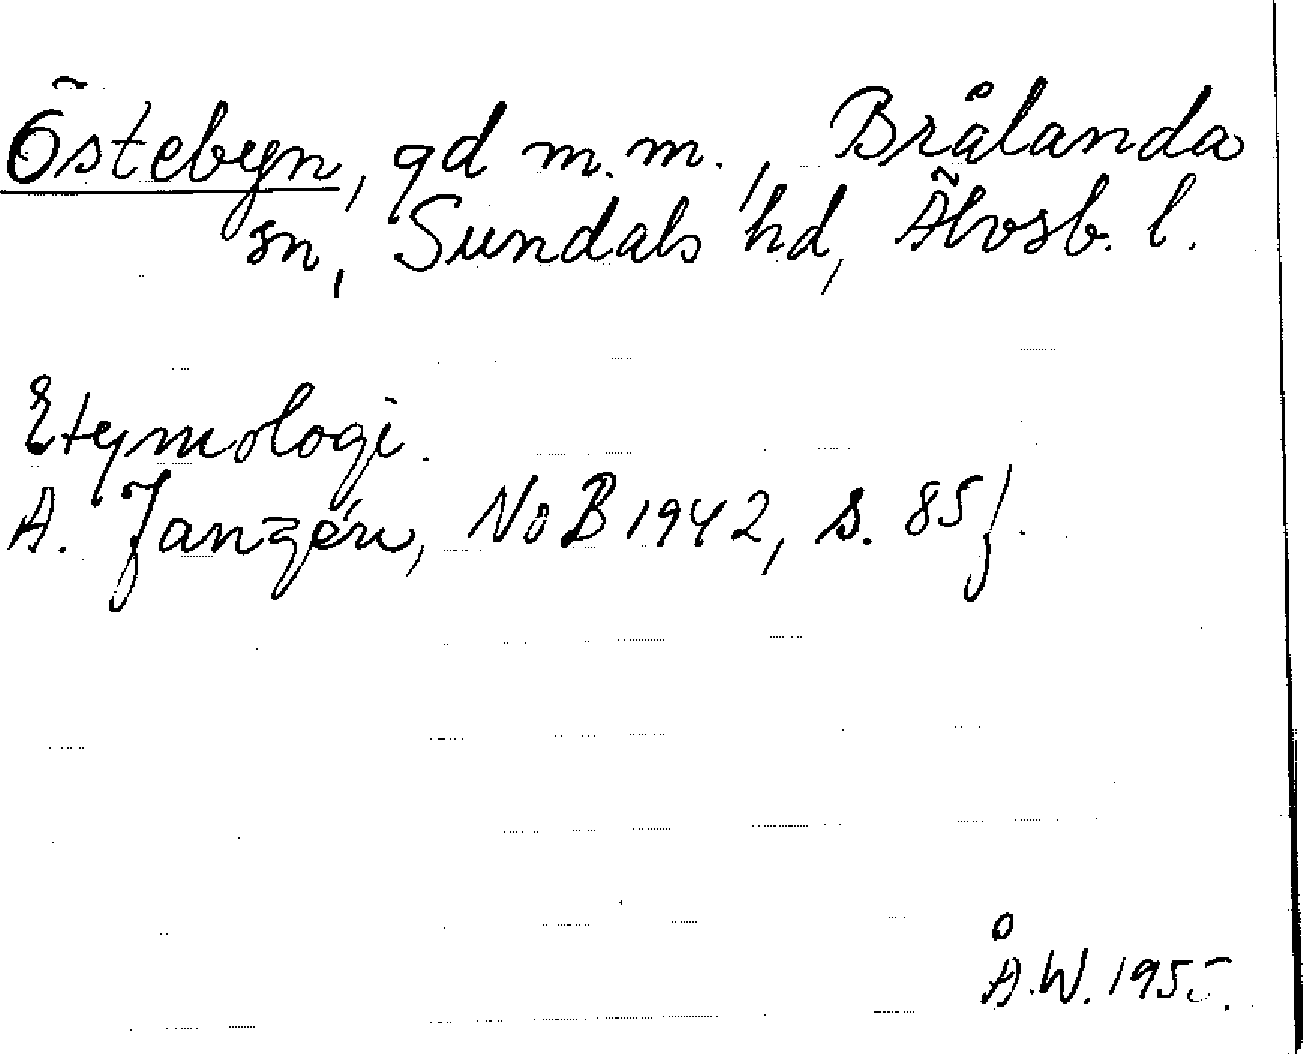 Östebyn, gd m.m., Brålanda
sn, Sundals hd, Älvsb. l.
Etymologi.
A. Janzén, NoB 1942, s. 85 f.
Å.W. 1955.